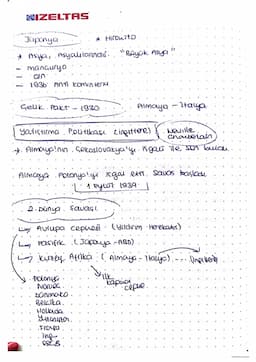 İZELTAŞ
Japonya * Hirohito
* Asya, Asyalılarındır. "Büyük Asya"
- mançurya
- çin
- 1936 Anti komintern
Çelik Pakt - 1939 Almanya - İtalya
Yatıştırma Politikası (İngiltere) Neville Chamberlain
→ Almanya'nın Çekoslovakya'yı işgali ile son buldu
Almanya Polonya'yı işgal etti. Savaş başladı
1 Eylül 1939
2. Dünya Savaşı
→ Avrupa cephesi (Yıldırım Harekatı)
→ Pasifik (Japonya - ABD)
→ Kuzey Afrika (Almanya - İtalya) ... İngiltere
Polonya
Norveç
Danimarka
Belçika
Hollanda
Fransa
İng
SSCB
ilk
cephe